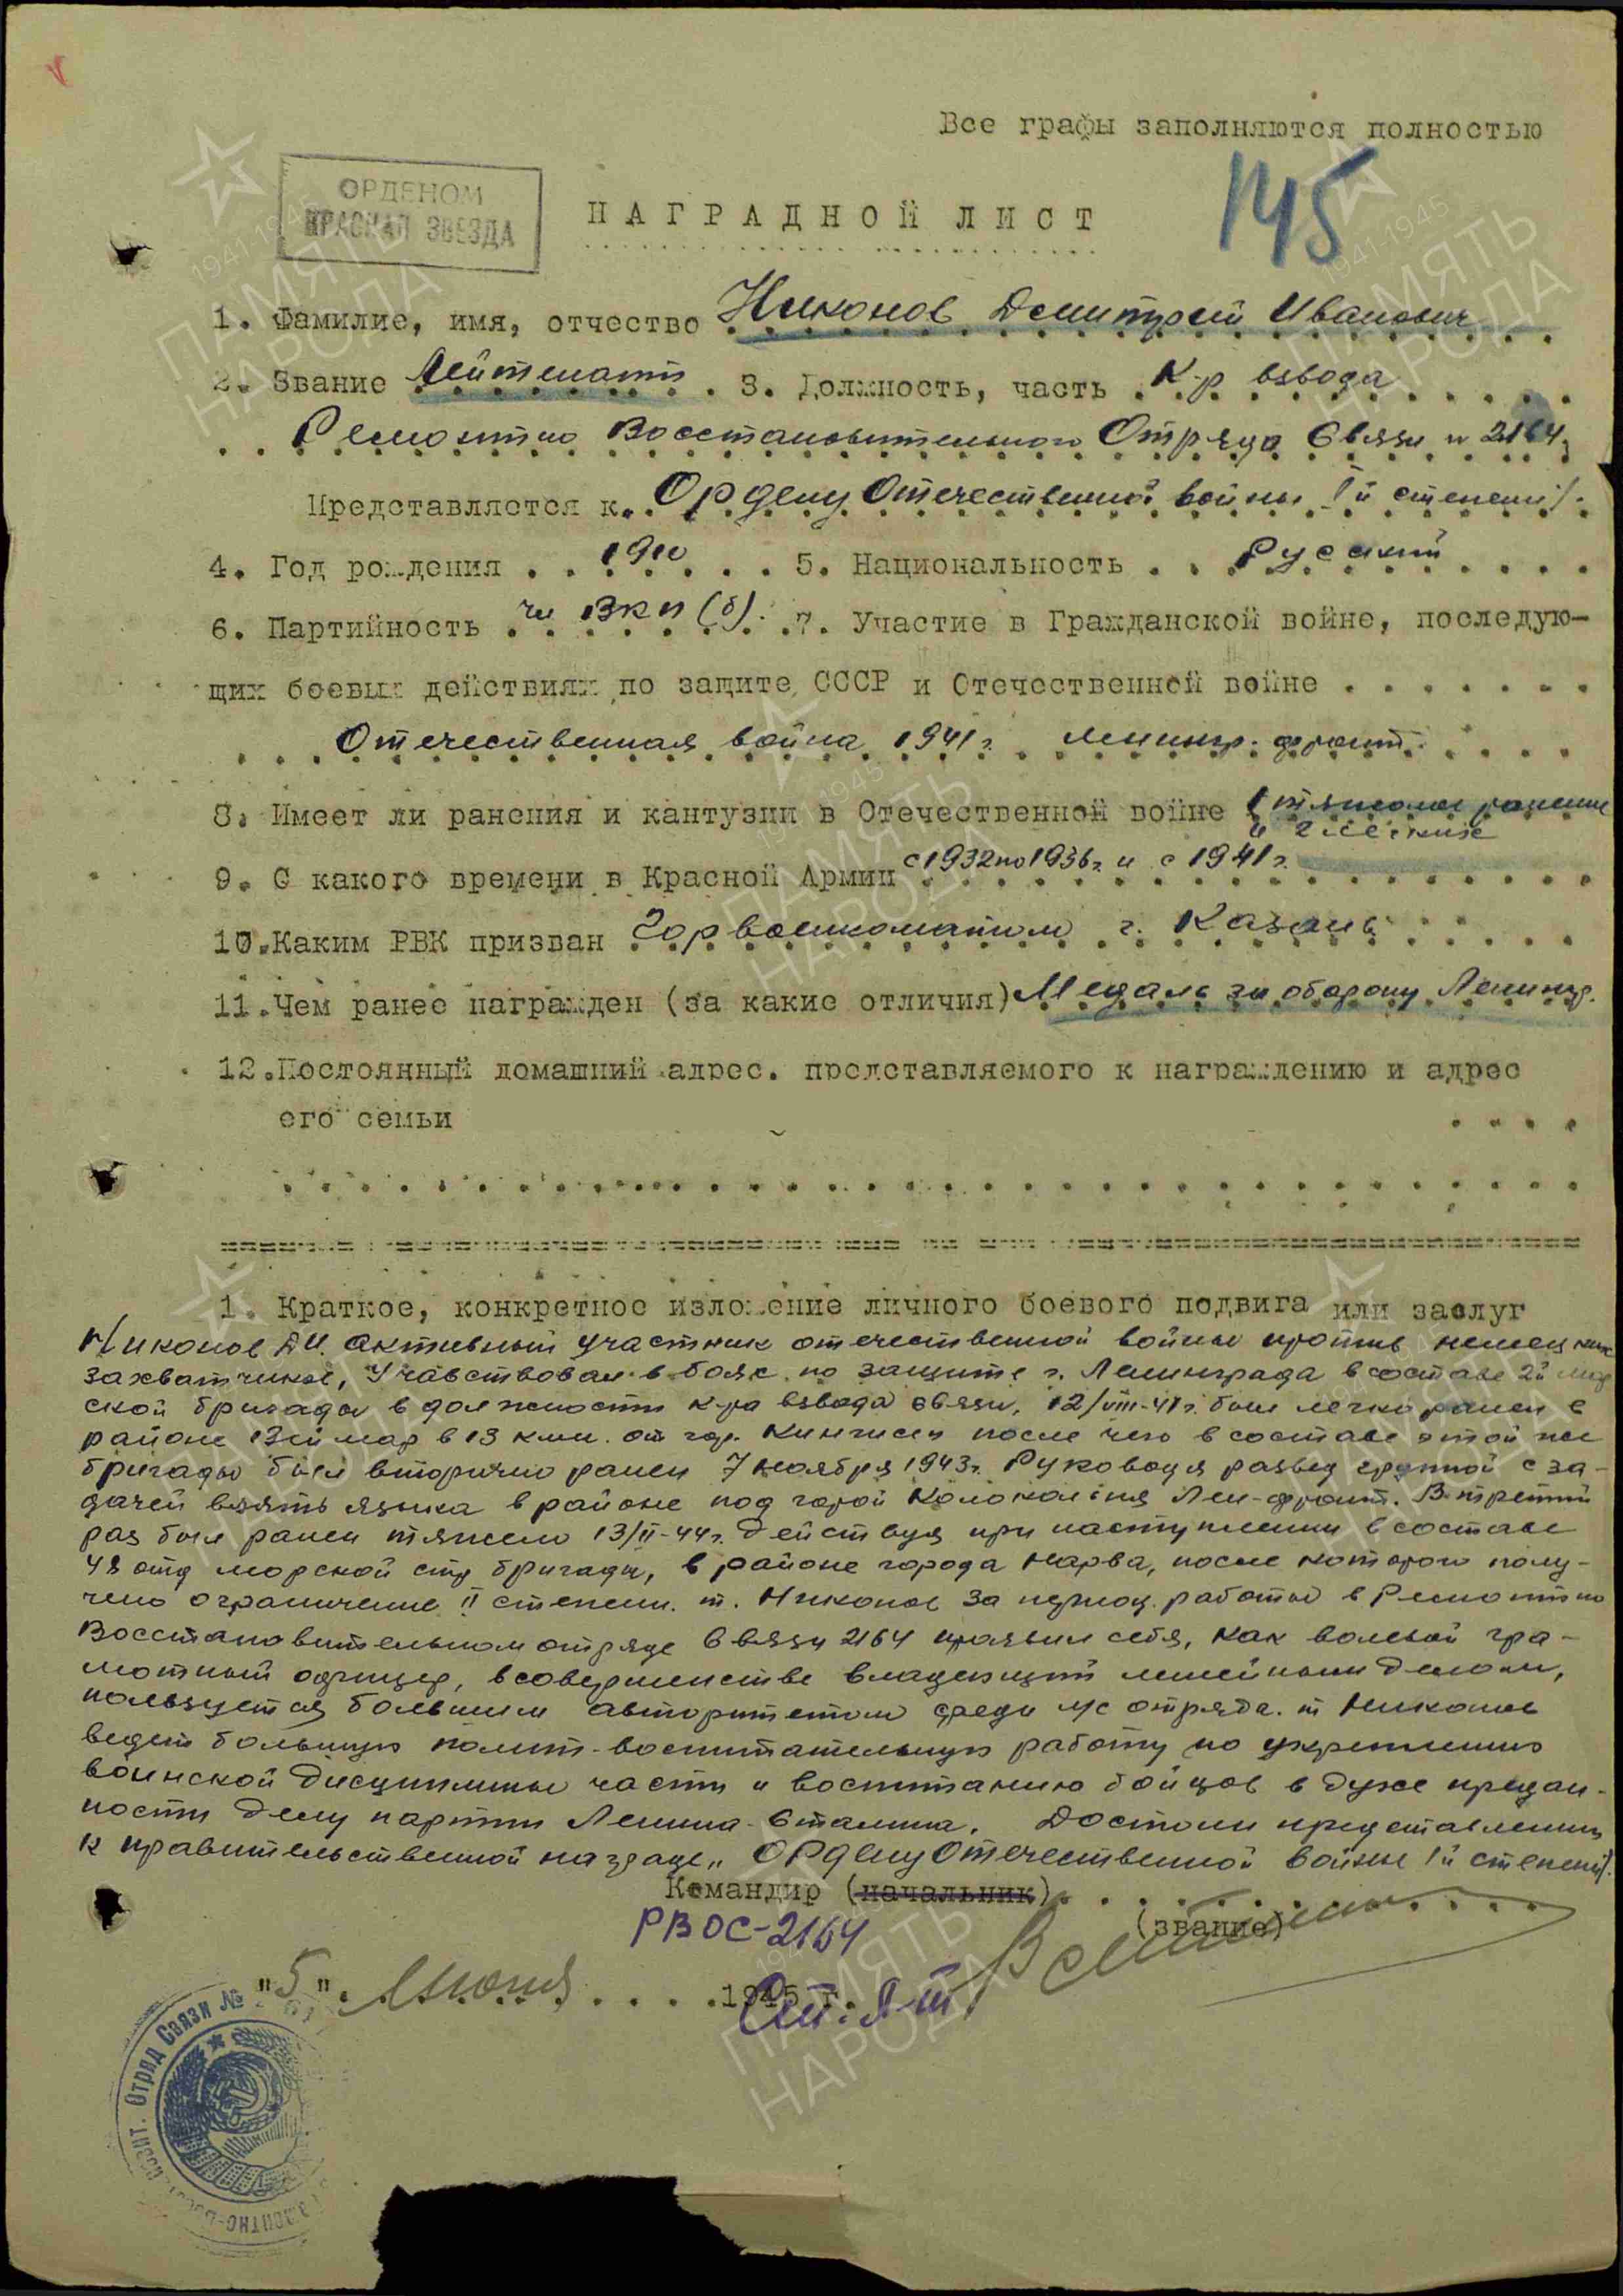 Все графы заполняются полностью
145
ОРДЕНОМ
КРАСНАЯ ЗВЕЗДА
НАГРАДНОЙ ЛИСТ
1. Фамилие, имя, отчество Никонов Дмитрий Иванович
2. Звание Лейтенант. 3. Должность, часть К-р взвода
Ремонтно Восстановительного Отряда Связи н 2164
Представляется к. Ордену Отечественной войны Iй степени
4. Год рождения 1910 5. Национальность Русский
6. Партийность чл ВКП(б). 7. Участие в Гражданской войне, последую-
щих боевых действиях по защите СССР и Отечественной войне
Отечественная война 1941г. Ленингр. фронт.
8. Имеет ли ранения и кантузии в Отечественной войне 1 тяжелое ранение
и 2 легких
9. С какого времени в Красной Армии с 1932 по 1936г. и с 1941г.
10. Каким РВК призван Горвоенкоматом г. Казань
11. Чем ранее награжден (за какие отличия) Медаль за оборону Ленингр.
12. Постоянный домашний адрес. представляемого к награждению и адрес
его семьи
1. Краткое, конкретное изложение личного боевого подвига или заслуг
Никонов Д.И. активный участник отечественной войны против немецких
захватчиков, Учавствовал в боях по защите г. Ленинграда в составе 2й мор
ской бригады в должности к-ра взвода связи, 12/VIII-41г. был легко ранен в
районе в 13 клм. от гор. Кингисеп после чего в составе этой же
бригады был вторично ранен 7 ноября 1943г. Руководя развед группой с за-
дачей взять языка в районе под горой Колокольня Лен-фронт. В третий
раз был ранен тяжело 13/II-44г. действуя при наступлении в составе
48 отд морской стр бригады, в районе города Нарва, после которого полу-
чено ограничение II степени. т. Никонов за период работы в Ремонтно
Восстановительном отряде Связи 2164 проявил себя, как волевой гра-
мотный офицер, в совершенстве владеющий линейным делом,
пользуется большим авторитетом среди л/с отряда. т Никонов
ведет большую полит-воспитательную работу по укреплению
воинской дисциплины части и воспитанию бойцов в духе предан-
ности делу партии Ленина-Сталина. Достоин представления
к правительственной награде „Ордену Отечественной войны Iй степени
Командир (начальник)
РВОС-2164
(звание)
"5" Июня 1945 г.
Ст. Л-т
Отряд Связи №
ПАМЯТЬ НАРОДА
1941-1945